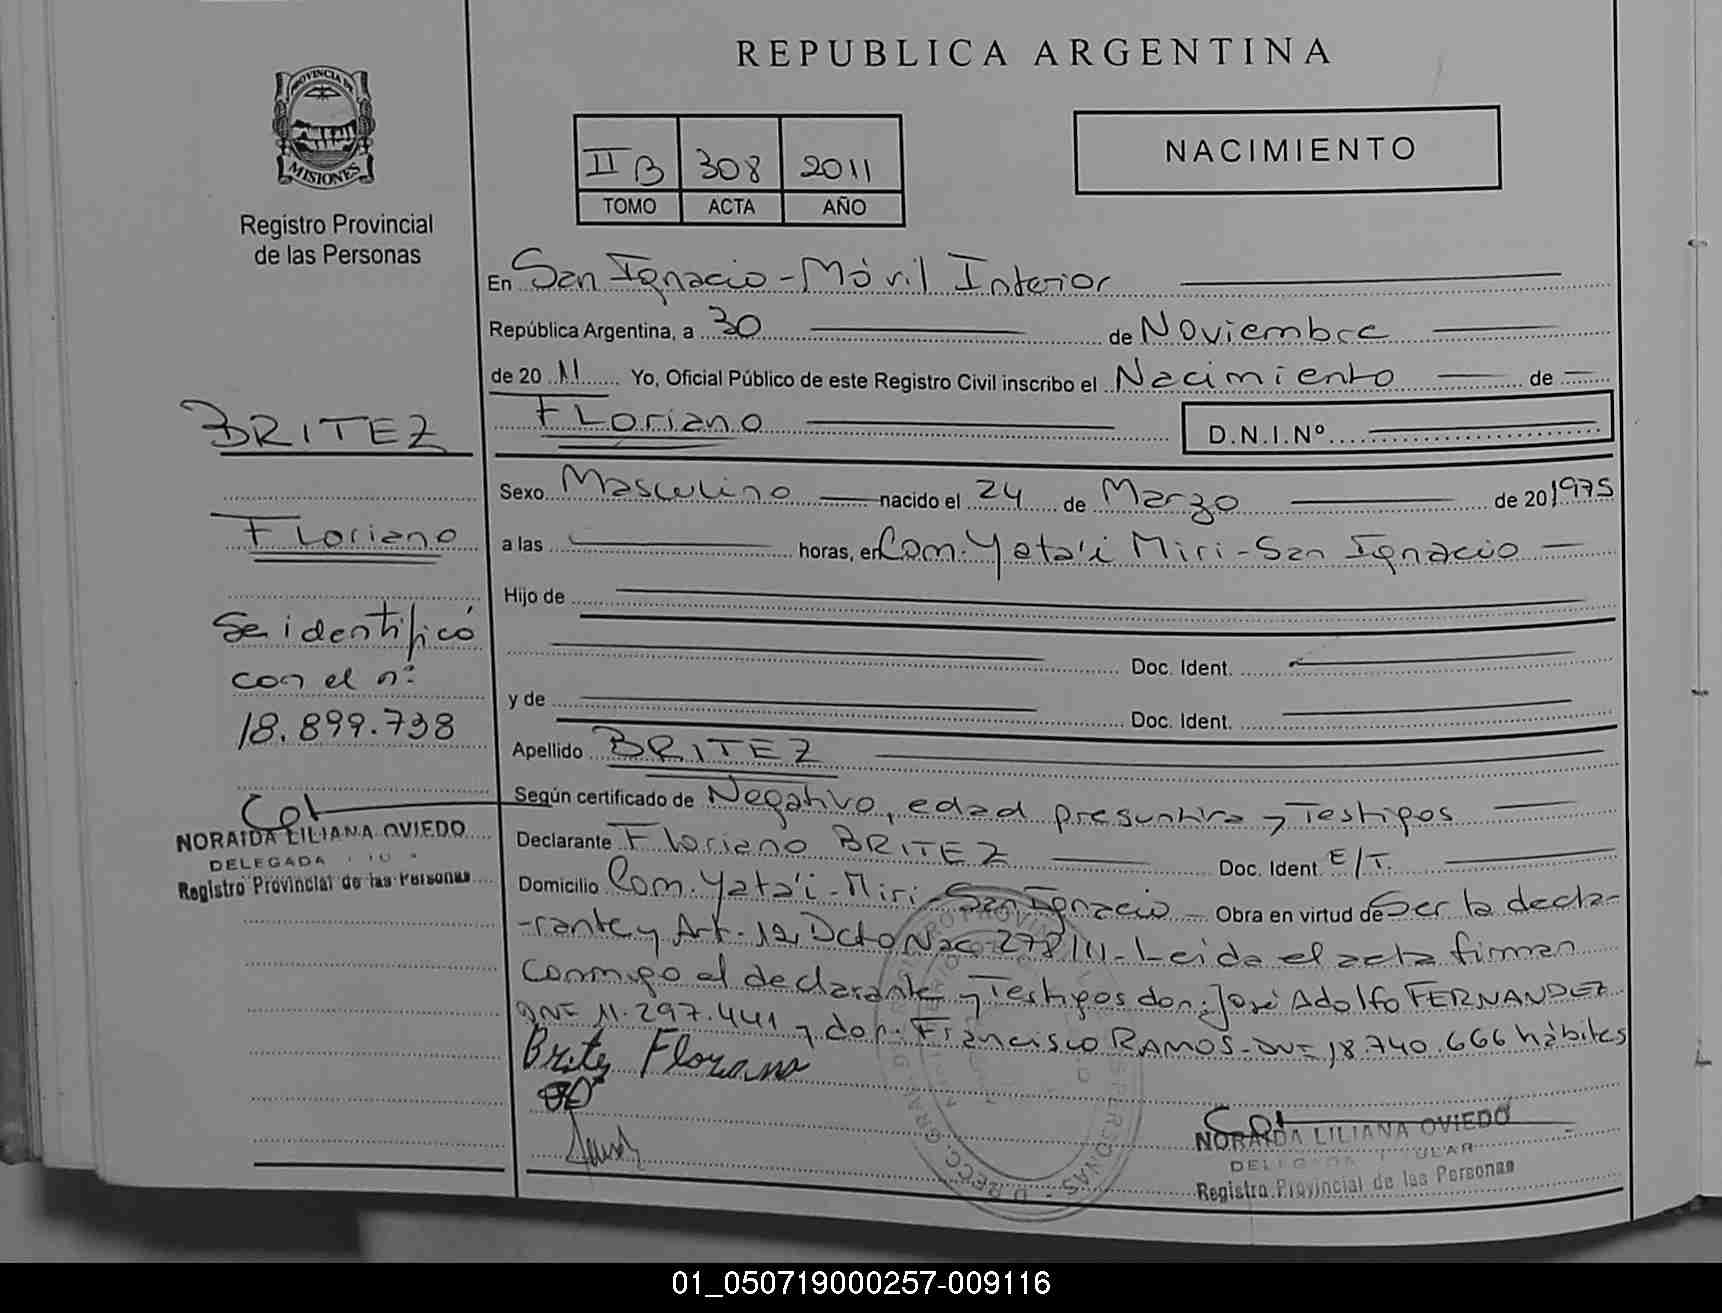 REPUBLICA ARGENTINA
PROVINCIA DE
MISIONES
Registro Provincial
de las Personas
II B 308 2011
TOMO ACTA AÑO
NACIMIENTO
En San Ignacio - Móvil Interior
República Argentina, a 30 de Noviembre
de 20 11 Yo, Oficial Público de este Registro Civil inscribo el Nacimiento de
Floriano D.N.I.Nº
Sexo Masculino nacido el 24 de Marzo de 20 1975
a las horas, en Com. Yata'i Miri - San Ignacio
Hijo de
Doc. Ident.
y de Doc. Ident.
Apellido BRITEZ
Según certificado de Negativo, edad presuntiva y Testigos
Declarante Floriano BRITEZ Doc. Ident. E/T.
Domicilio Com. Yata'i - Miri - San Ignacio - Obra en virtud de Ser la decla-
-rante y Art. 12, Dcto Nac 278/11 - Leida el acta firman
conmigo el declarante y Testigos don: José Adolfo FERNANDEZ
DNI 11.297.441 y don: Francisco RAMOS - DNI 18.740.666 hábiles
Britez Floriano
NORAIDA LILIANA OVIEDO
DELEGADA TITULAR
Registro Provincial de las Personas
BRITEZ
Floriano
Se identificó
con el nº
18.899.738
NORAIDA LILIANA OVIEDO
DELEGADA
Registro Provincial de las Personas
01_050719000257-009116